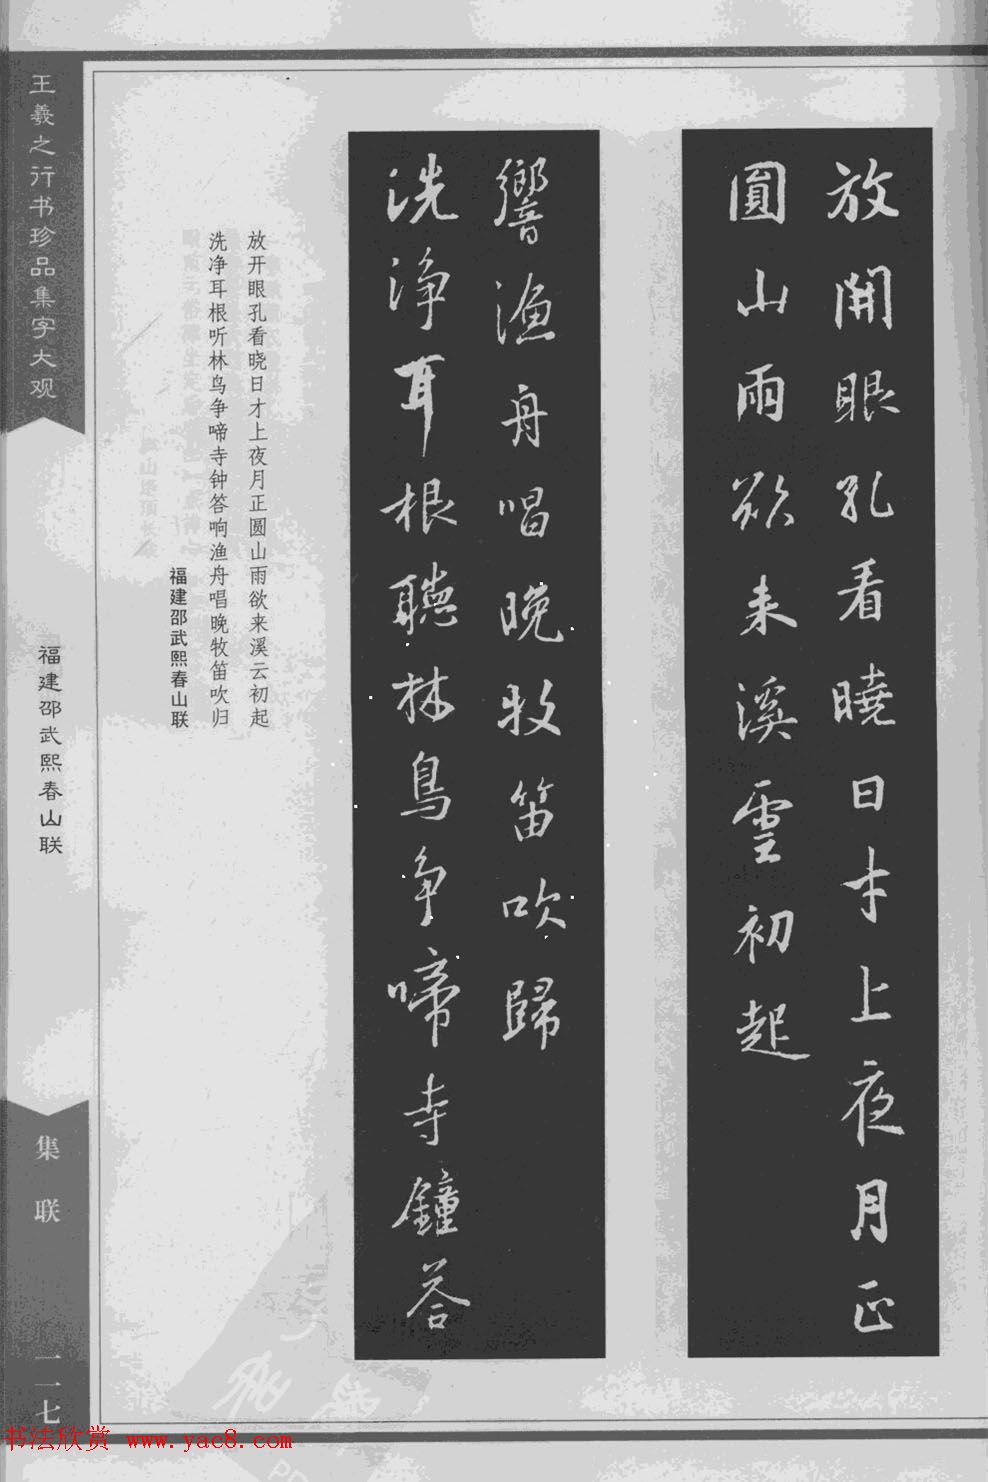 放開眼孔看曉日才上夜月正
圓山雨欲来溪雲初起
洗淨耳根聽林鳥争啼寺鐘荅
響漁舟唱晚牧笛吹歸
放开眼孔看晓日才上夜月正圆山雨欲来溪云初起
洗净耳根听林鸟争啼寺钟答响渔舟唱晚牧笛吹归
福建邵武熙春山联
王羲之行书珍品集字大观
福建邵武熙春山联
集联
一二七
书法欣赏 www.yac8.com